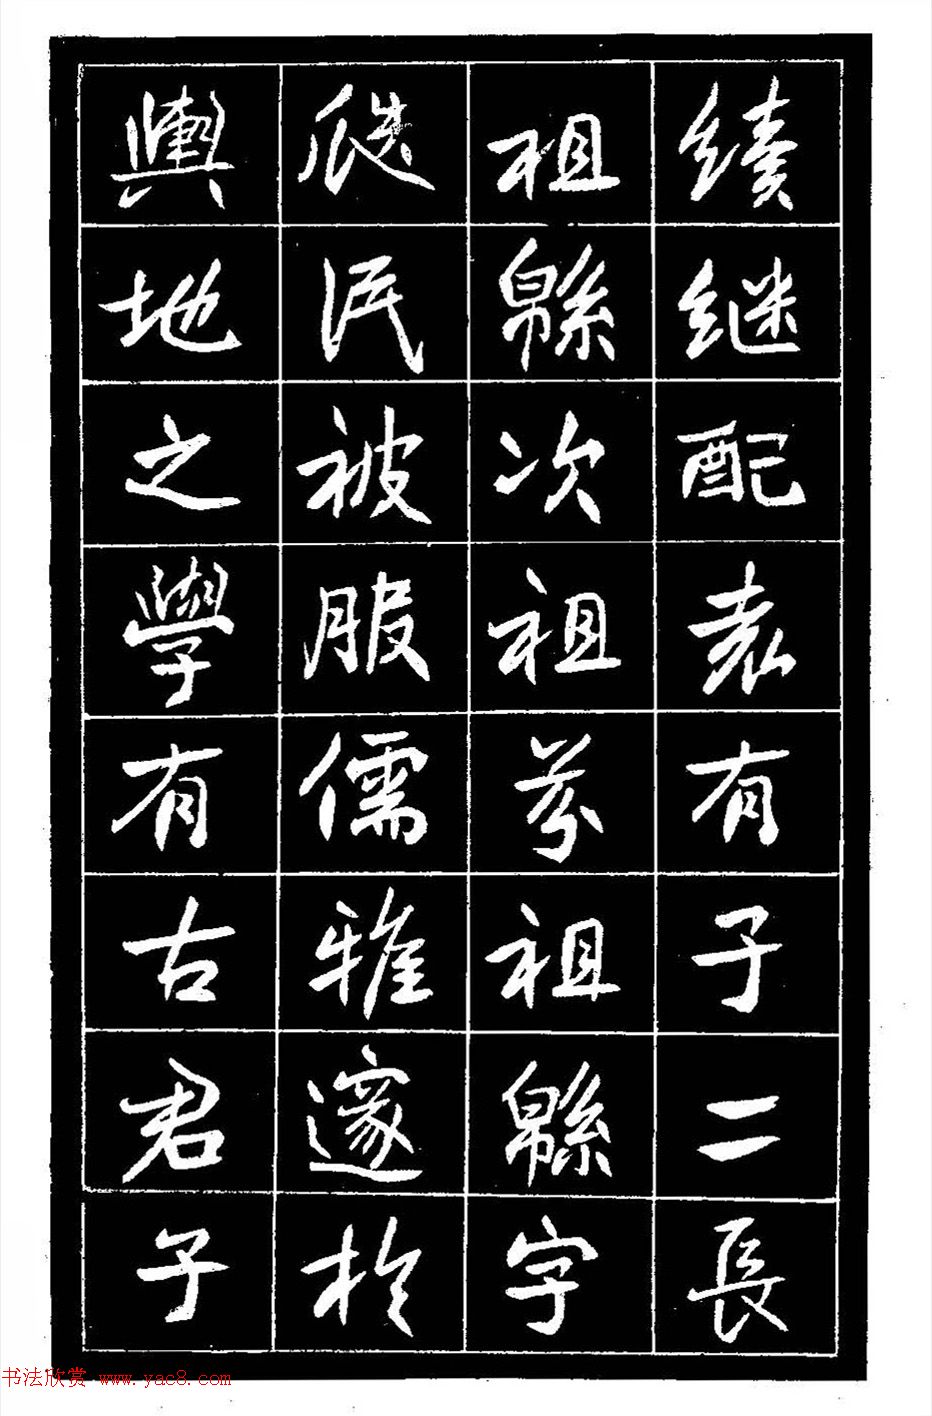 續继配袁有子二長
祖緜次祖芬祖緜字
瓞民被服儒雅邃於
輿地之學有古君子
书法欣赏 www.yac8.com